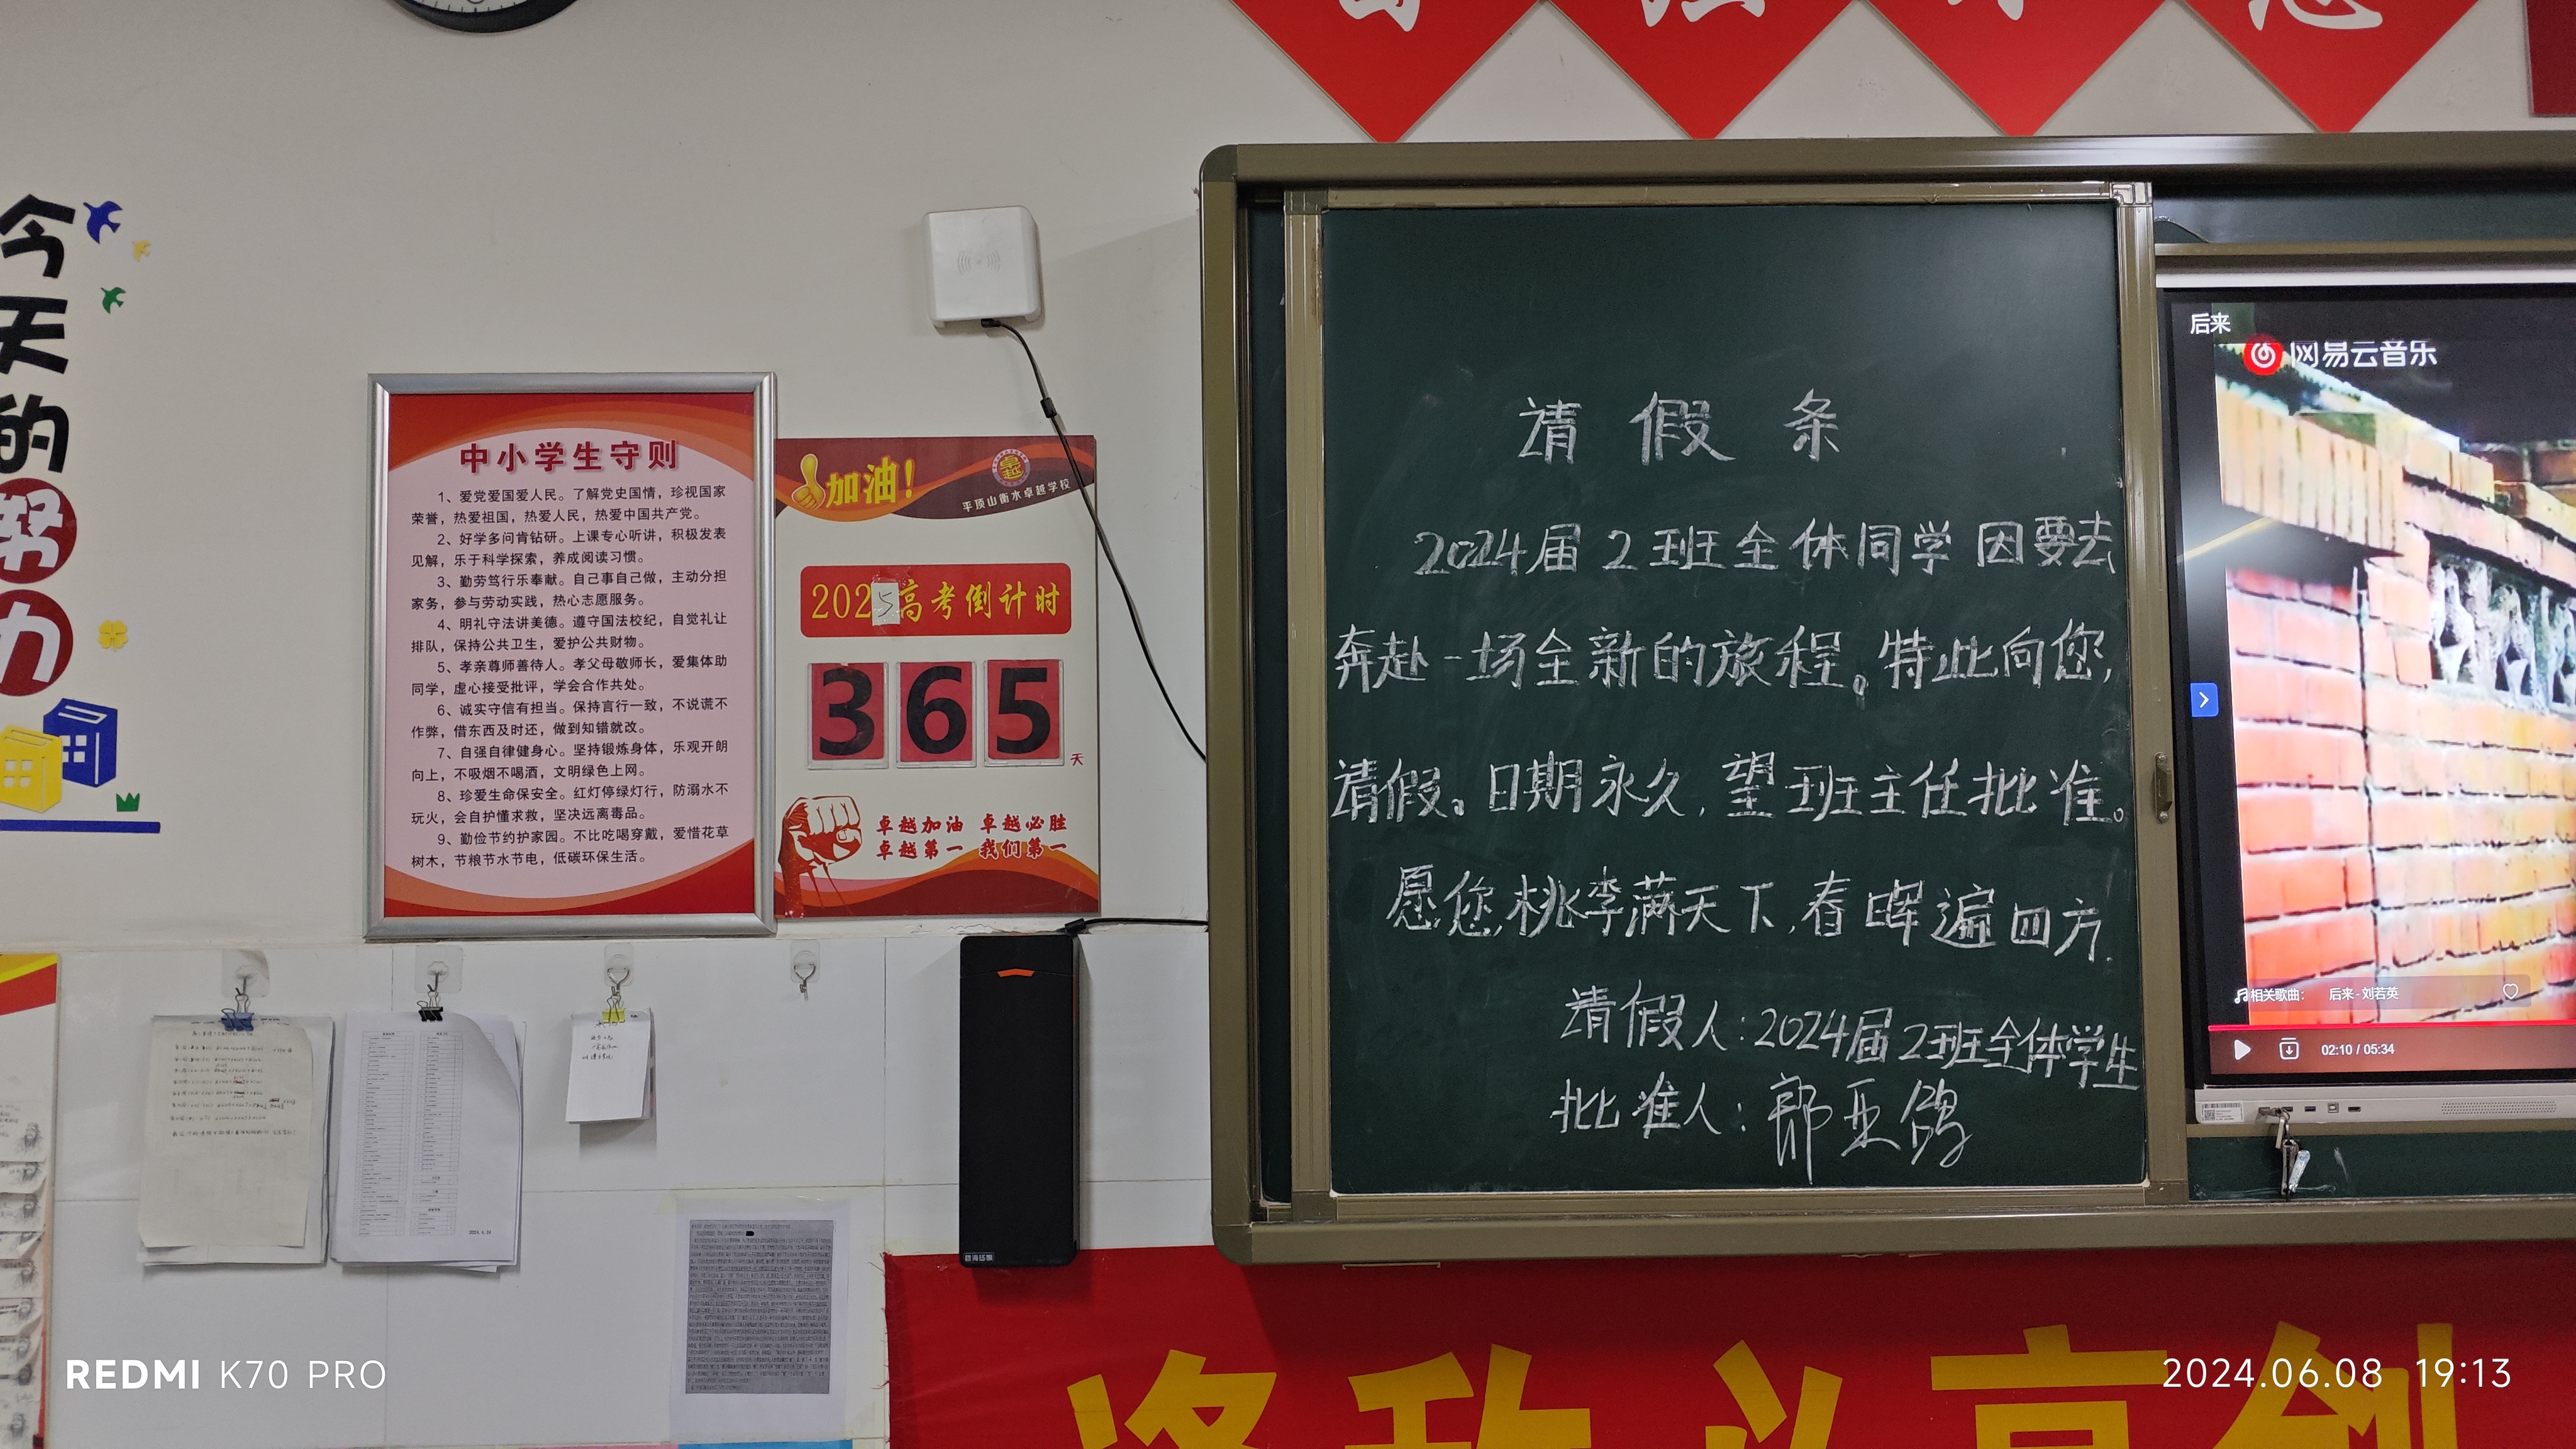 今天的努力
中小学生守则
1、爱党爱国爱人民。了解党史国情，珍视国家
荣誉，热爱祖国，热爱人民，热爱中国共产党。
2、好学多问肯钻研。上课专心听讲，积极发表
见解，乐于科学探索，养成阅读习惯。
3、勤劳笃行乐奉献。自己事自己做，主动分担
家务，参与劳动实践，热心志愿服务。
4、明礼守法讲美德。遵守国法校纪，自觉礼让
排队，保持公共卫生，爱护公共财物。
5、孝亲尊师善待人。孝父母敬师长，爱集体助
同学，虚心接受批评，学会合作共处。
6、诚实守信有担当。保持言行一致，不说谎不
作弊，借东西及时还，做到知错就改。
7、自强自律健身心。坚持锻炼身体，乐观开朗
向上，不吸烟不喝酒，文明绿色上网。
8、珍爱生命保安全。红灯停绿灯行，防溺水不
玩火，会自护懂求救，坚决远离毒品。
9、勤俭节约护家园。不比吃喝穿戴，爱惜花草
树木，节粮节水节电，低碳环保生活。
加油！
卓越
平顶山衡水卓越学校
2025高考倒计时
365天
卓越加油 卓越必胜
卓越第一 我们第一
请假条
2024届2班全体同学因要去
奔赴一场全新的旅程。特此向您，
请假。日期永久，望班主任批准。
愿您，桃李满天下，春晖遍四方.
请假人：2024届2班全体学生
批准人：郭亚鸽
后来
网易云音乐
相关歌曲： 后来-刘若英
02:10 / 05:34
2024.4.26
REDMI K70 PRO
2024.06.08 19:13